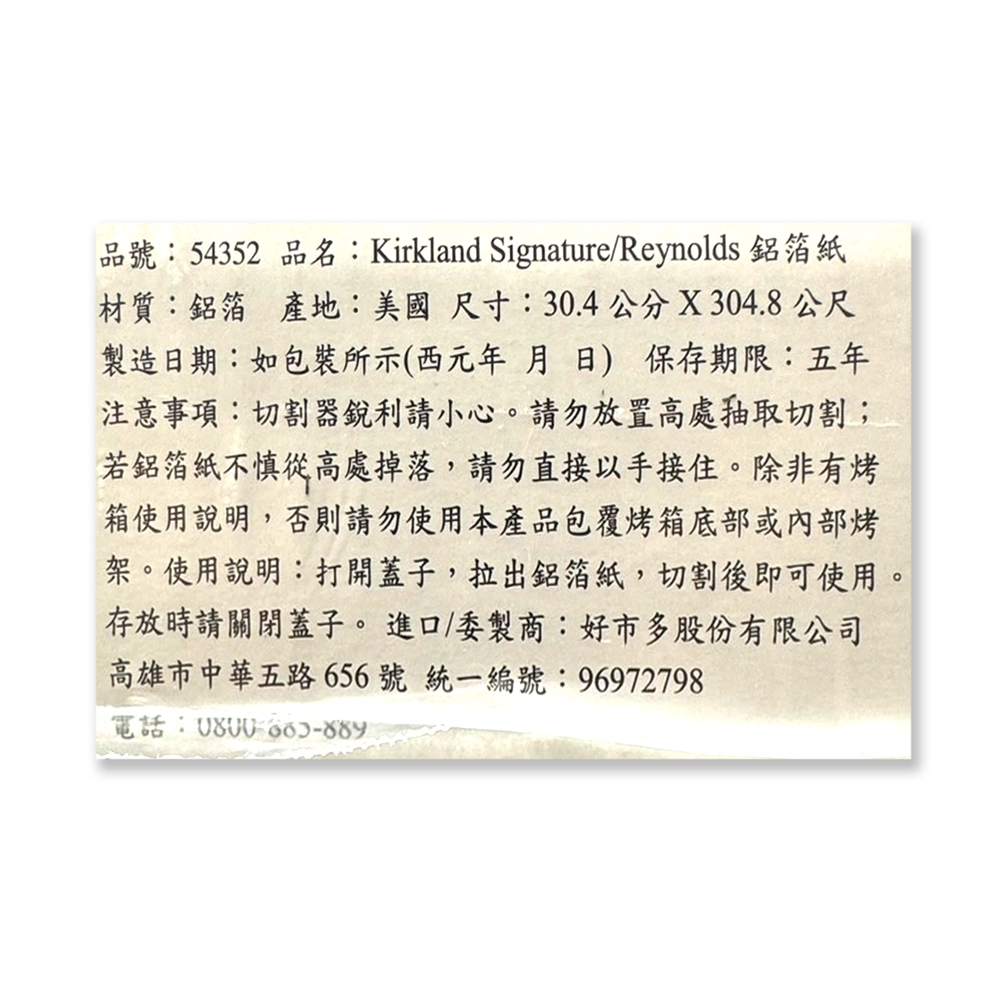 品號：54352 品名：Kirkland Signature/Reynolds 鋁箔紙
材質：鋁箔 產地：美國 尺寸：30.4 公分 X 304.8 公尺
製造日期：如包裝所示(西元年 月 日) 保存期限：五年
注意事項：切割器銳利請小心。請勿放置高處抽取切割；
若鋁箔紙不慎從高處掉落，請勿直接以手接住。除非有烤
箱使用說明，否則請勿使用本產品包覆烤箱底部或內部烤
架。使用說明：打開蓋子，拉出鋁箔紙，切割後即可使用。
存放時請關閉蓋子。進口/委製商：好市多股份有限公司
高雄市中華五路 656 號 統一編號：96972798
電話：0800-885-889